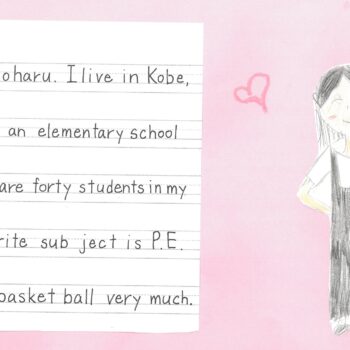 oharu. I live in Kobe,
an elementary school
are forty students in my
rite sub ject is P.E.
basket ball very much.